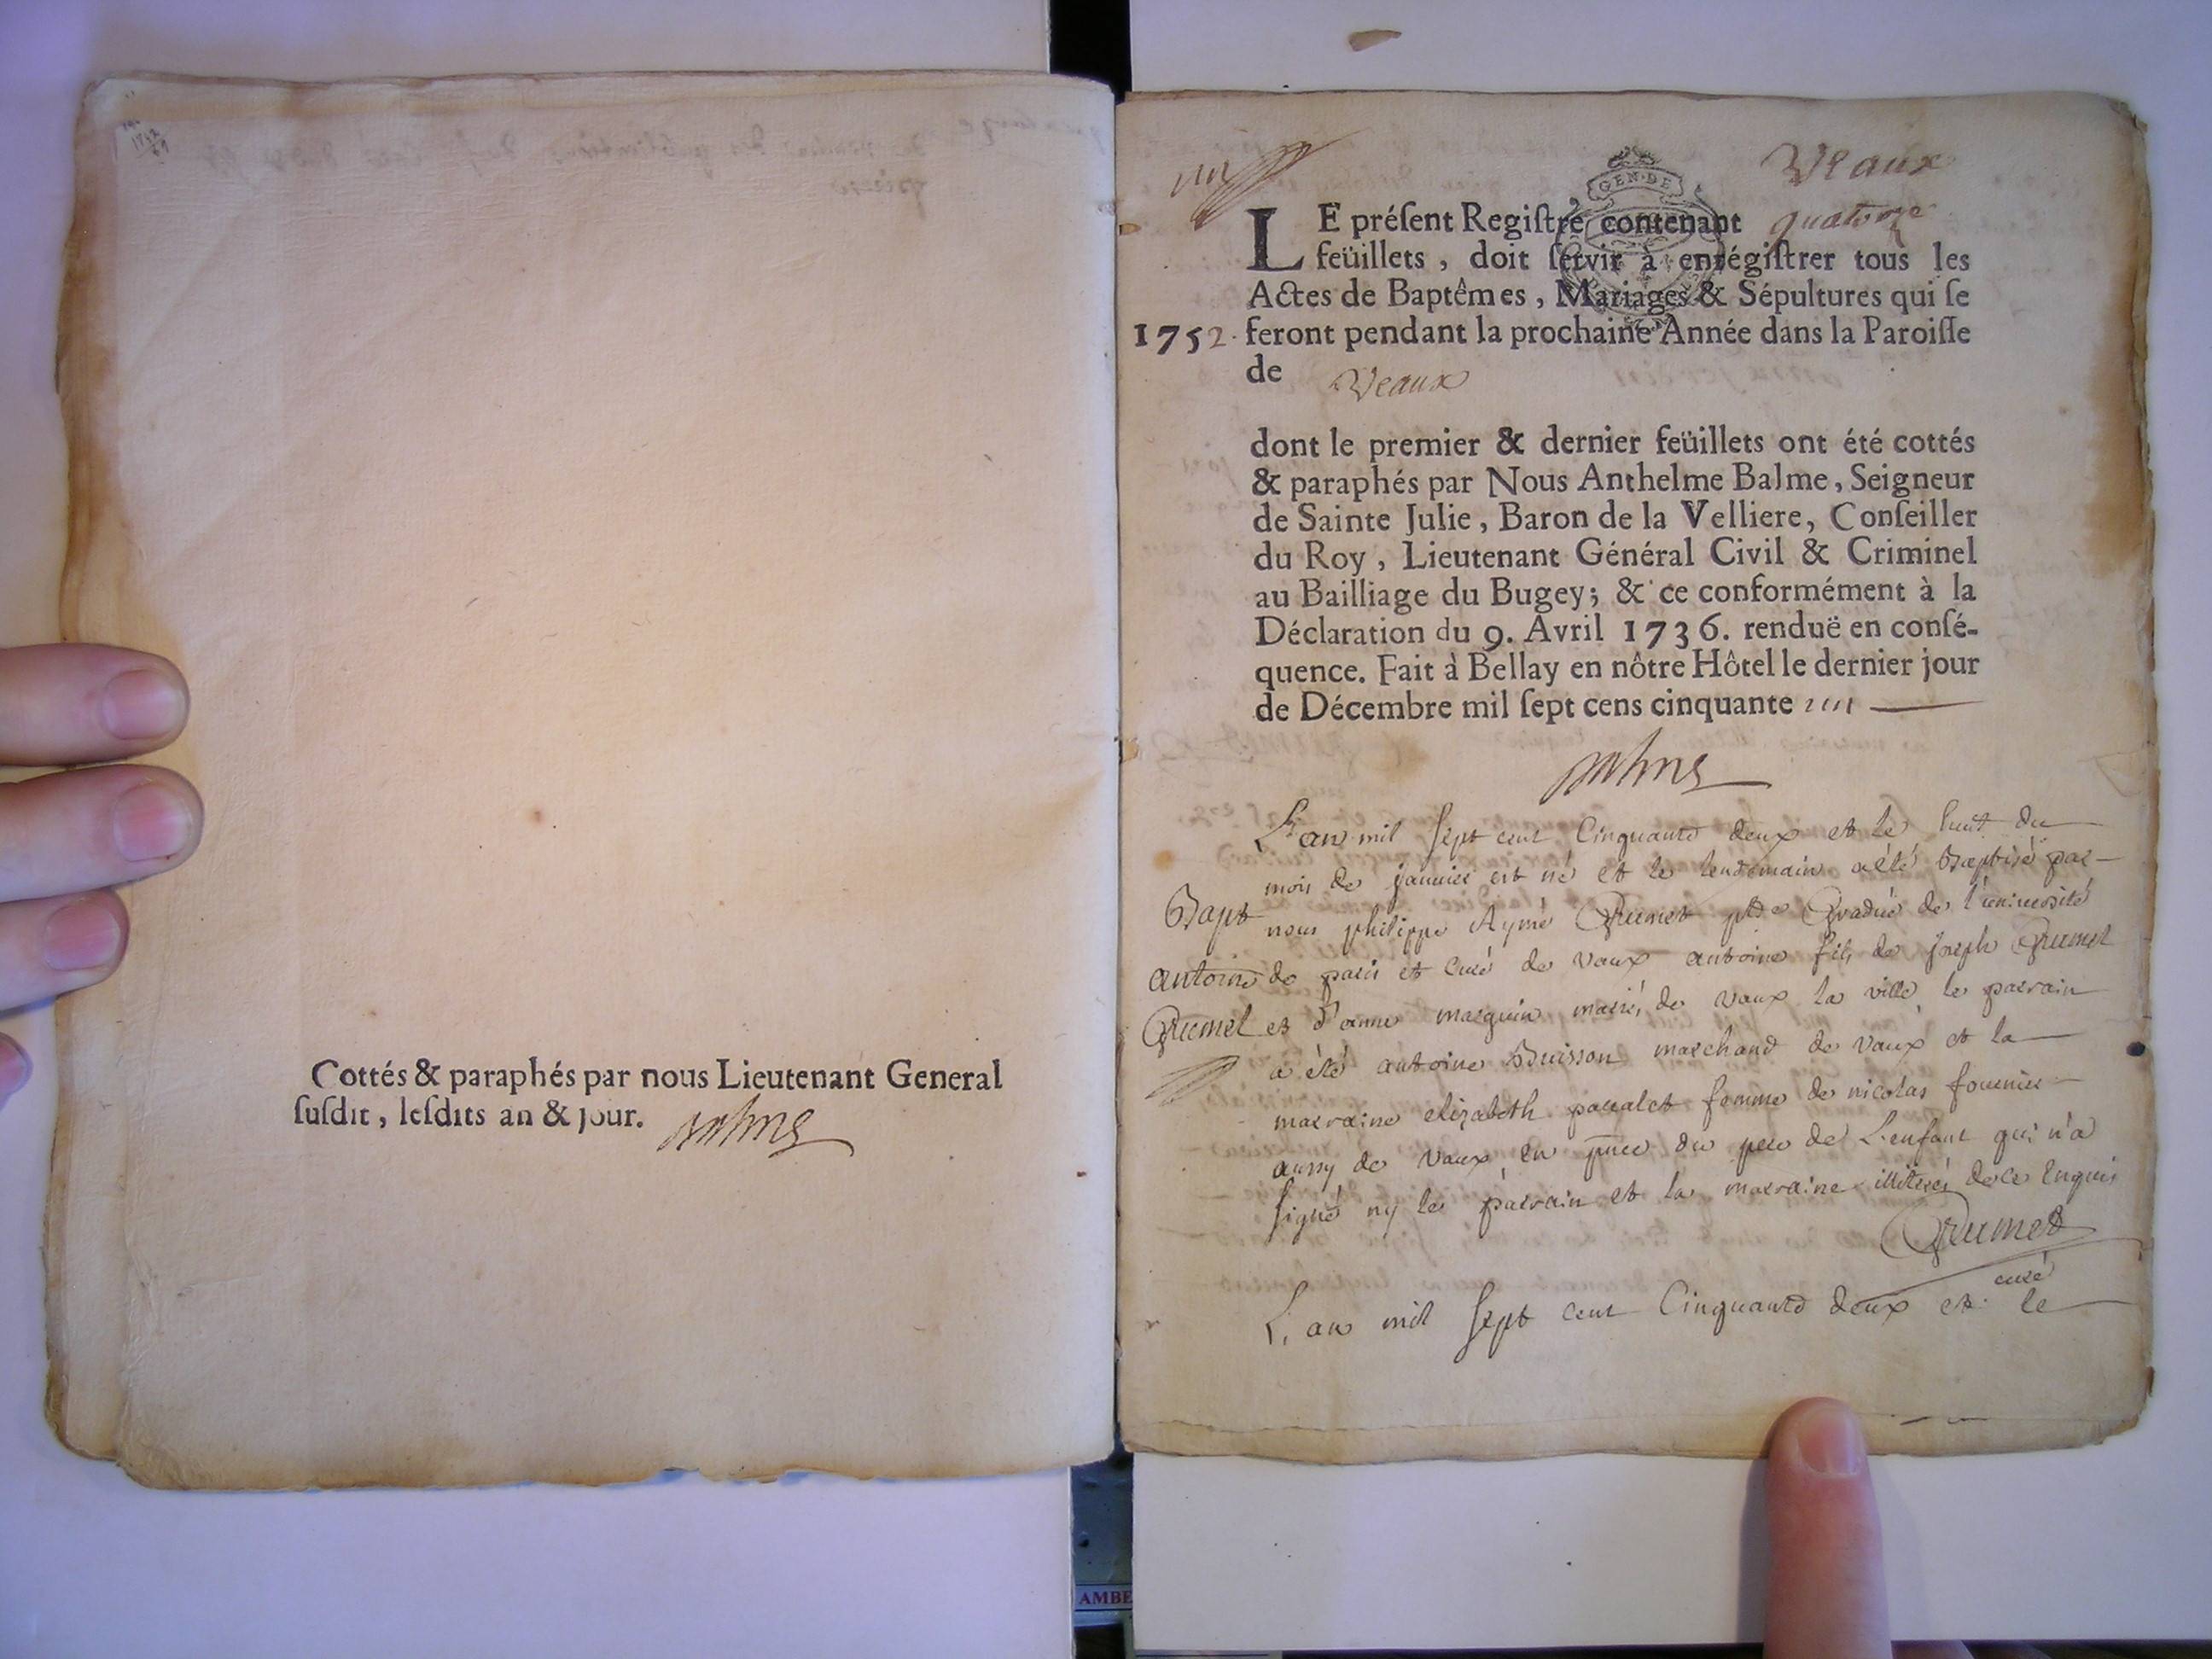 Cottés & paraphés par nous Lieutenant General
ſuſdit, leſdits an & jour.
un
GEN·DE
Veaux
LE préſent Regiſtre contenant quatorze
feüillets, doit ſervir à enrégiſtrer tous les
Actes de Baptêmes, Mariages & Sépultures qui ſe
1752. feront pendant la prochaine Année dans la Paroiſſe
de Veaux
dont le premier & dernier feüillets ont été cottés
& paraphés par Nous Anthelme Balme, Seigneur
de Sainte Julie, Baron de la Velliere, Conſeiller
du Roy, Lieutenant Général Civil & Criminel
au Bailliage du Bugey; & ce conformément à la
Déclaration du 9. Avril 1736. renduë en conſé-
quence. Fait à Bellay en nôtre Hôtel le dernier jour
de Décembre mil ſept cens cinquante un
L'an mil sept cent Cinquante deux et le huit du
mois de janvier est né et le lendemain a été Baptisé par
Bapt nous philippe Aymé Grumet gradué de l'université
antoine de paris et curé de vaux antoine fils de joseph Grumet
Grumet et d'anne marquin mariés de vaux la ville le parrain
a été antoine Buisson marchand de vaux et la
marraine elizabeth femme de nicolas fournier
aussy de vaux, en du pere de L'enfant qui n'a
signé ny le parrain et la marraine illiterés de ce Enquis
Grumet
curé
L'an mil sept cent Cinquante deux et le
AMBE